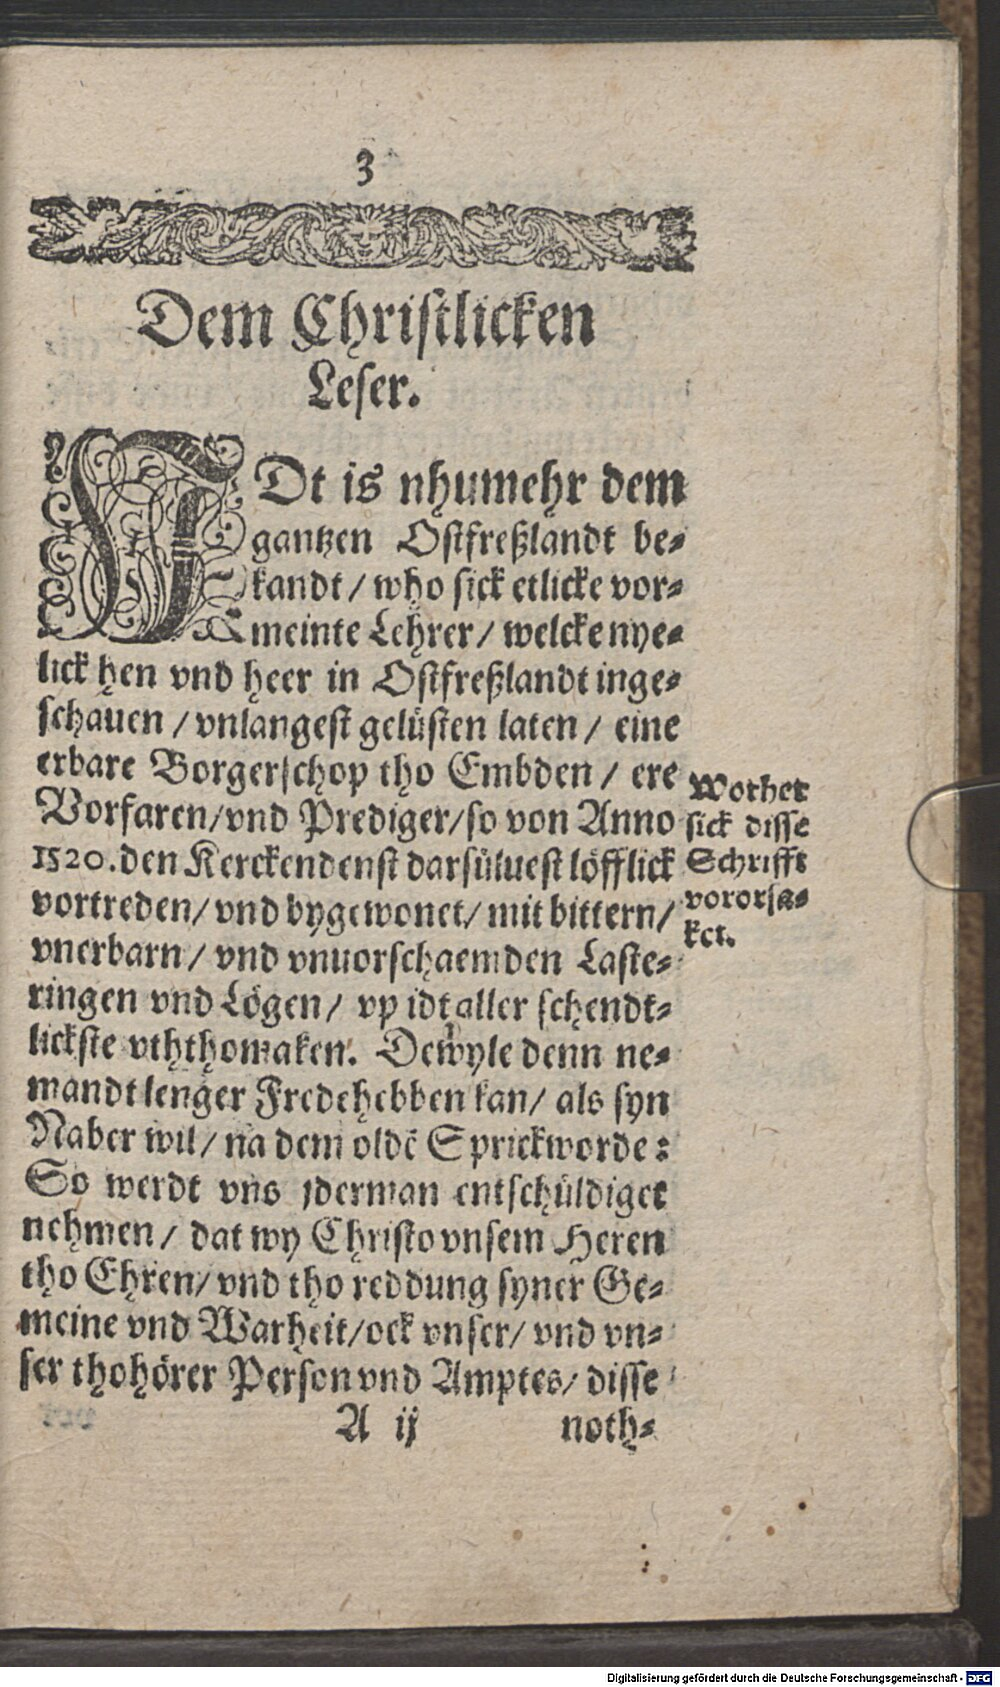 3
Dem Christlicken
Leser.
IDt is nhumehr dem
gantzen Ostfreßlandt be-
kandt / who sick etlicke vor-
meinte Lehrer / welcke nye-
lick hen vnd heer in Ostfreßlandt inge-
schauen / vnlangest gelüsten laten / eine
erbare Borgerschop tho Embden / ere
Vorfaren/vnd Prediger/so von Anno
1520.den Kerckendenst darsüluest löfflick
vortreden/vnd bygewonet/mit bittern/
vnerbarn/ vnd vnuorschaemden Laste-
ringen vnd Lögen/ vp idt aller schendt-
lickste vththomaken. Dewyle denn ne-
mandt lenger Fredehebben kan/ als syn
Naber wil/ na dem oldẽ Sprickworde:
So werdt vns jderman entschüldiget
nehmen/ dat wy Christo vnsem Heren
tho Ehren/vnd tho reddung syner Ge-
meine vnd Warheit/ock vnser/ vnd vn-
ser thohörer Person vnd Amptes/ disse
A ij noth-
Worher
sick disse
Schrifft
vororsa-
ket.
Digitalisierung gefördert durch die Deutsche Forschungsgemeinschaft - DFG